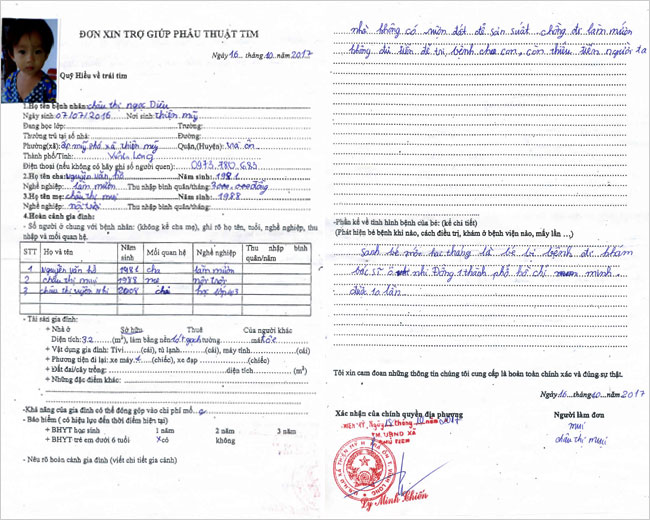 ĐƠN XIN TRỢ GIÚP PHẪU THUẬT TIM
Ngày 16 ... tháng 10 .năm 2017
Quỹ Hiểu về trái tim
1.Họ tên bệnh nhân: châu thị ngọc Diệu
Ngày sinh 07/07/2016 Nơi sinh thiện mỹ
Đang học lớp: Trường:
Thường trú tại số nhà: Đường:
Phường(xã): ấp mỹ phó xã thiện mỹ Quận,(Huyện): trà ôn
Thành phố/Tỉnh: Vĩnh Long
Điện thoại (nếu không có hãy ghi số người quen): 0973.780.683
2.Họ tên cha: nguyễn văn hồ Năm sinh: 1981
Nghề nghiệp: làm mướn Thu nhập bình quân/tháng:
3.Họ tên mẹ: châu thị mui Năm sinh: 1988
Nghề nghiệp: nội trợ Thu nhập bình quân/tháng:
4.Hoàn cảnh gia đình:
- Số người ở chung với bệnh nhân: (không kể cha mẹ), ghi rõ họ tên, tuổi, nghề nghiệp, thu
nhập và mối quan hệ.
STT Họ và tên Năm sinh Mối quan hệ Nghề nghiệp Thu nhập bình quân/năm
1 nguyễn văn hồ 1981 cha làm mướn
2 châu thị mui 1988 mẹ nội trợ
3 châu thị 2008 chị học lớp 4/3
- Tài sản gia đình:
+ Nhà ở Sở hữu Thuê Của người khác
Diện tích: 32 (m²), làm bằng nền lót gạch tường mái
+ Vật dụng gia đình: Tivi (cái), tủ lạnh (cái), máy tính (cái)
+ Phương tiện đi lại: xe máy 1 (chiếc), xe đạp (chiếc)
+ Đất đai/cây trồng: diện tích (m²)
+ Những đặc điểm khác:
-Khả năng của gia đình có thể đóng góp vào chi phí mổ. 0
- Bảo hiểm ( có hiệu lực đến thời điểm hiện tại)
+ BHYT học sinh 1 năm 2 năm 3 năm
+ BHYT trẻ em dưới 6 tuổi x có không
- Nêu rõ hoàn cảnh gia đình (viết chi tiết gia cảnh)
nhà không có miện đất để sản suất chồng đi làm mướn
không đủ tiền để trị bệnh cho con, con thiếu tiền người ta
-Phần kể về tình hình bệnh của bé: (kể chi tiết)
(Phát hiện bé bệnh khi nào, cách điều trị, khám ở bệnh viện nào, mấy lần ...)
sanh bé một tháng là bé bị bệnh đi khám
bác sĩ ở nhi Đồng 1 thành phố hồ chí minh.
được 10 lần.
Tôi xin cam đoan những thông tin chúng tôi cung cấp là hoàn toàn chính xác và đúng sự thật.
Ngày 16 ... tháng 10 .năm 2017
Xác nhận của chính quyền địa phương Người làm đơn
Ngày 10 2017
TM.UBND XÃ
mui
châu thị mui
Lý Minh Chiến